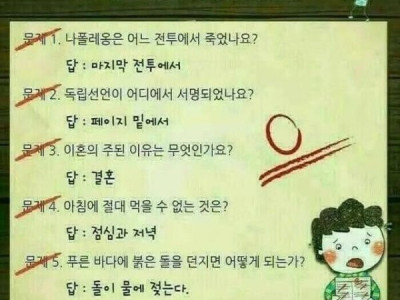 문제 1. 나폴레옹은 어느 전투에서 죽었나요?
답 : 마지막 전투에서
문제 2. 독립선언이 어디에서 서명되었나요?
답 : 페이지 밑에서
문제 3. 이혼의 주된 이유는 무엇인가요?
답 : 결혼
문제 4. 아침에 절대 먹을 수 없는 것은?
답 : 점심과 저녁
문제 5. 푸른 바다에 붉은 돌을 던지면 어떻게 되는가?
답 : 돌이 물에 젖는다.